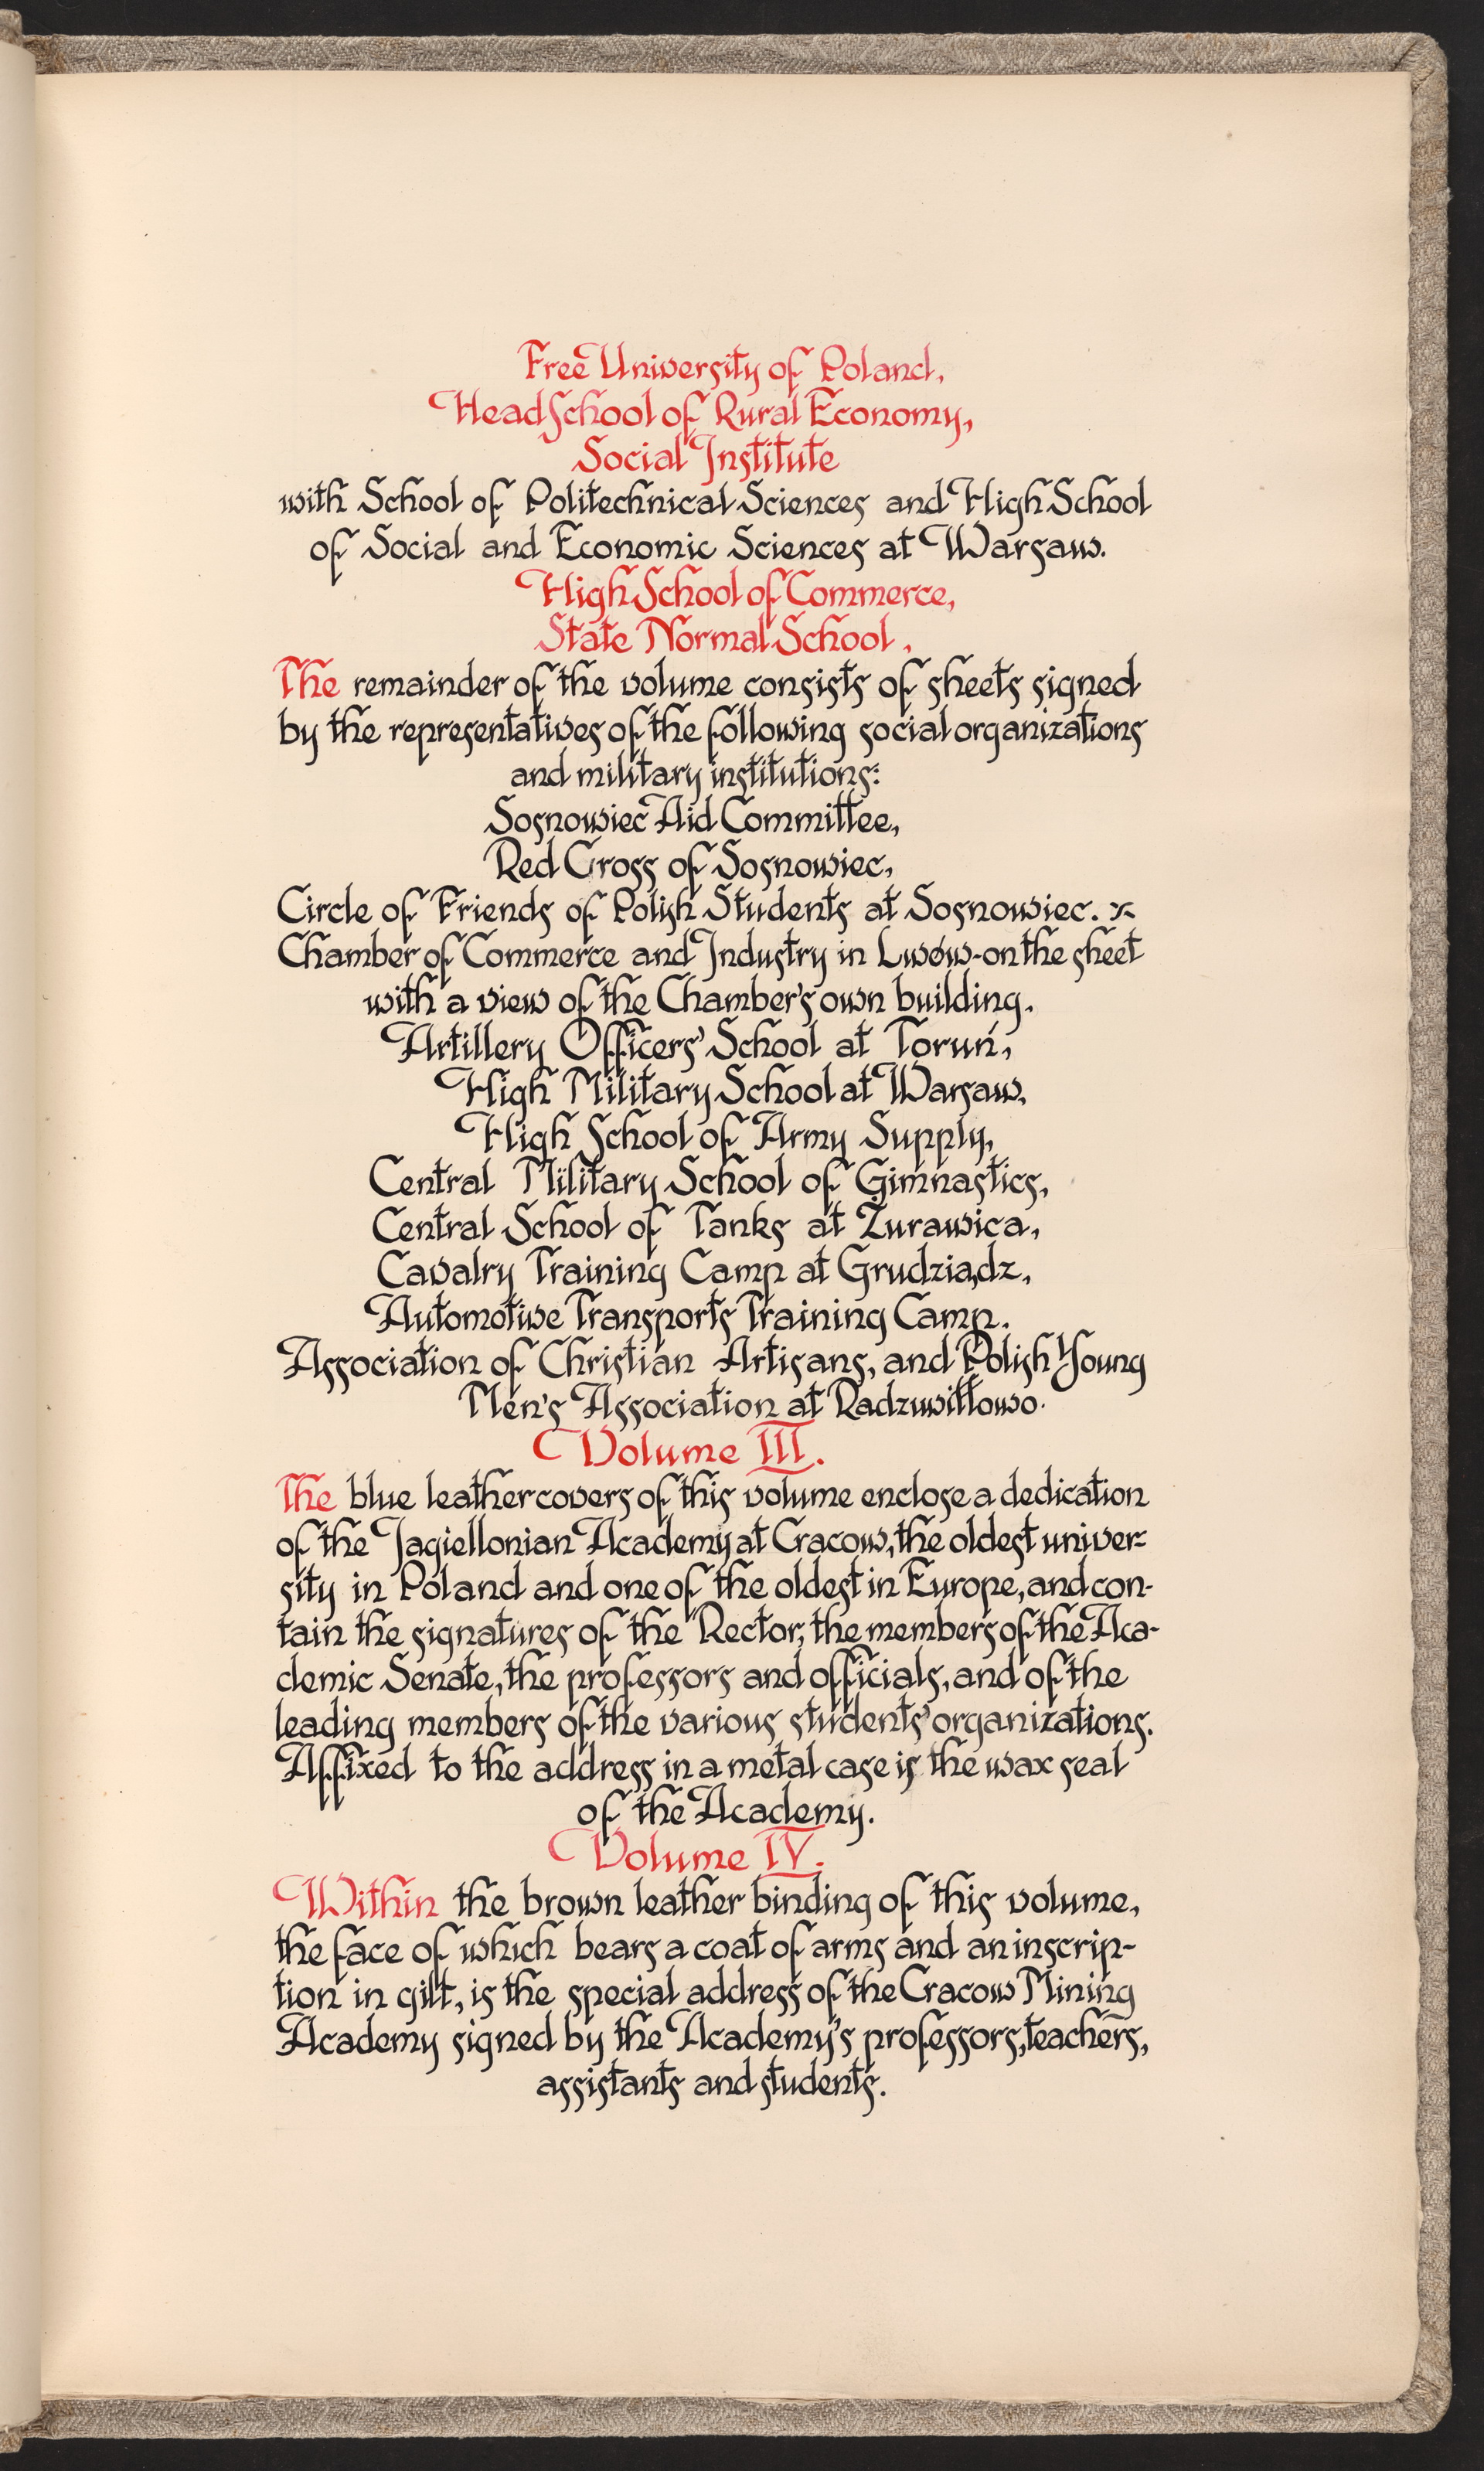 Free University of Poland,
Head School of Rural Economy,
Social Institute
with School of Politechnical Sciences and High School
of Social and Economic Sciences at Warsaw.
High School of Commerce,
State Normal School.
The remainder of the volume consists of sheets signed
by the representatives of the following social organizations
and military institutions:
Sosnowiec Aid Committee,
Red Cross of Sosnowiec,
Circle of Friends of Polish Students at Sosnowiec.
Chamber of Commerce and Industry in Lwów-on the sheet
with a view of the Chamber's own building.
Artillery Officers' School at Toruń,
High Military School at Warsaw,
High School of Army Supply,
Central Military School of Gimnastics,
Central School of Tanks at Żurawica,
Cavalry Training Camp at Grudziądz,
Automotive Transports Training Camp.
Association of Christian Artisans, and Polish Young
Men's Association at Radzuwiłłowo.
Volume III.
The blue leather covers of this volume enclose a dedication
of the Jagiellonian Academy at Cracow, the oldest univer=
sity in Poland and one of the oldest in Europe, and con-
tain the signatures of the Rector, the members of the Aca-
demic Senate, the professors and officials, and of the
leading members of the various students' organizations.
Affixed to the address in a metal case is the wax seal
of the Academy.
Volume IV.
Within the brown leather binding of this volume,
the face of which bears a coat of arms and an inscrip-
tion in gilt, is the special address of the Cracow Mining
Academy signed by the Academy's professors, teachers,
assistants and students.